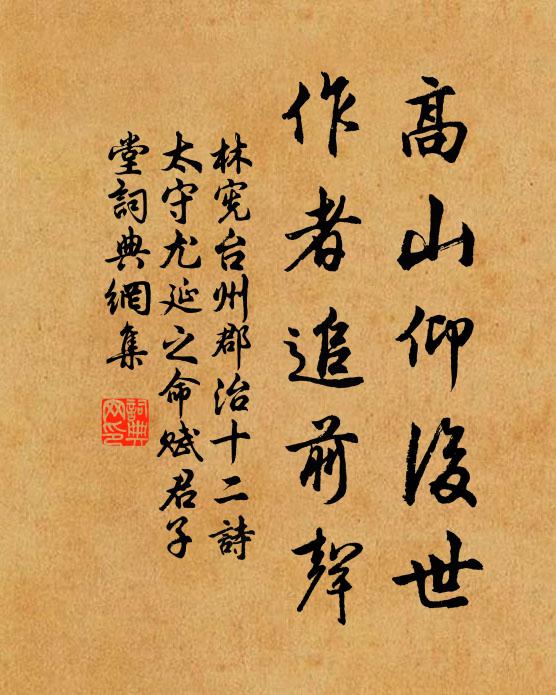 高山仰後世
作者追前聲
林宪台州郡治十二詩
太守尤延之命赋君子
堂詞典網集
詞典
网印